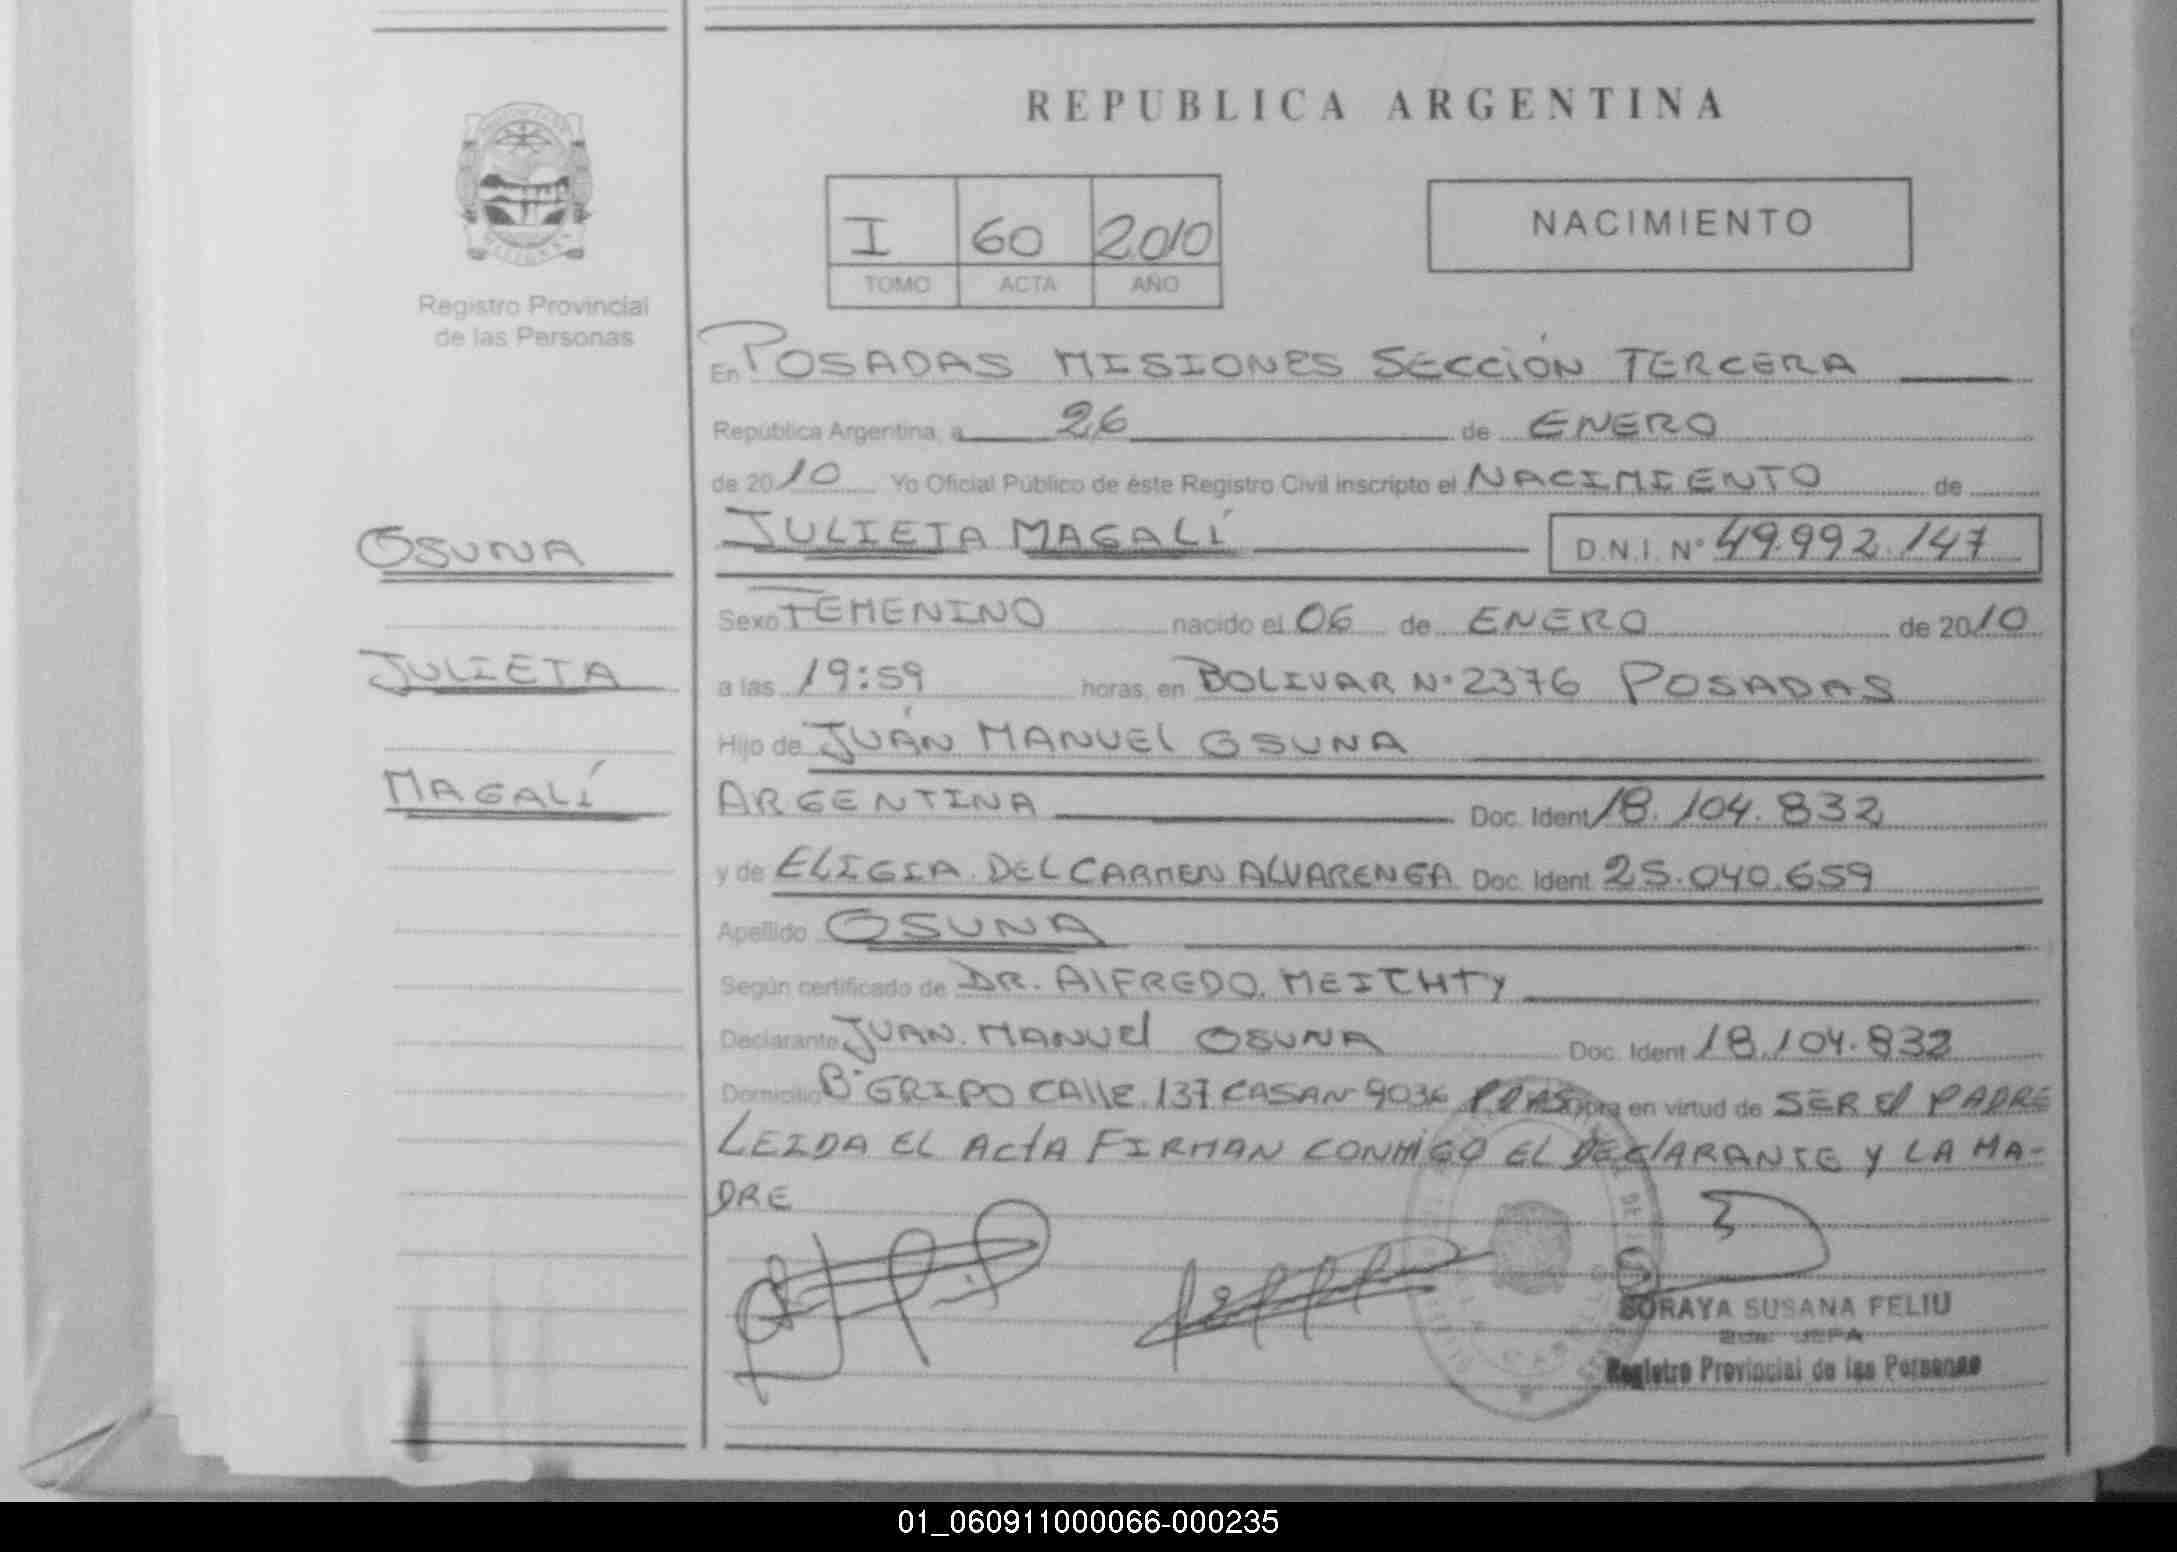 REPUBLICA ARGENTINA
I 60 2010
TOMO ACTA AÑO
NACIMIENTO
Registro Provincial
de las Personas
OSUNA
JULIETA
MAGALÍ
En POSADAS MISIONES SECCIÓN TERCERA
República Argentina, a 26 de ENERO
de 2010 Yo Oficial Público de éste Registro Civil inscripto el NACIMIENTO de
JULIETA MAGALÍ D.N.I. N° 49.992.147
Sexo FEMENINO nacido el 06 de ENERO de 2010
a las 19:59 horas, en BOLIVAR N° 2376 POSADAS
Hijo de JUÁN MANUEL OSUNA
ARGENTINA Doc. Ident 18.104.832
y de ELIGIA DEL CARMEN ALVARENGA Doc. Ident 25.040.659
Apellido OSUNA
Según certificado de DR. AlFREDO MEICHTY
Declarante JUAN MANUEl OSUNA Doc. Ident 18.104.832
Domicilio B° GRIPO CAllE 137 CASA N° 9036 PDAS en virtud de SER El PADRE
LEIDA EL ActA FIRMAN CONMIGO EL DEClARANTE y LA MA-
DRE
SORAYA SUSANA FELIU
JEFA
Registro Provincial de las Personas
01_060911000066-000235